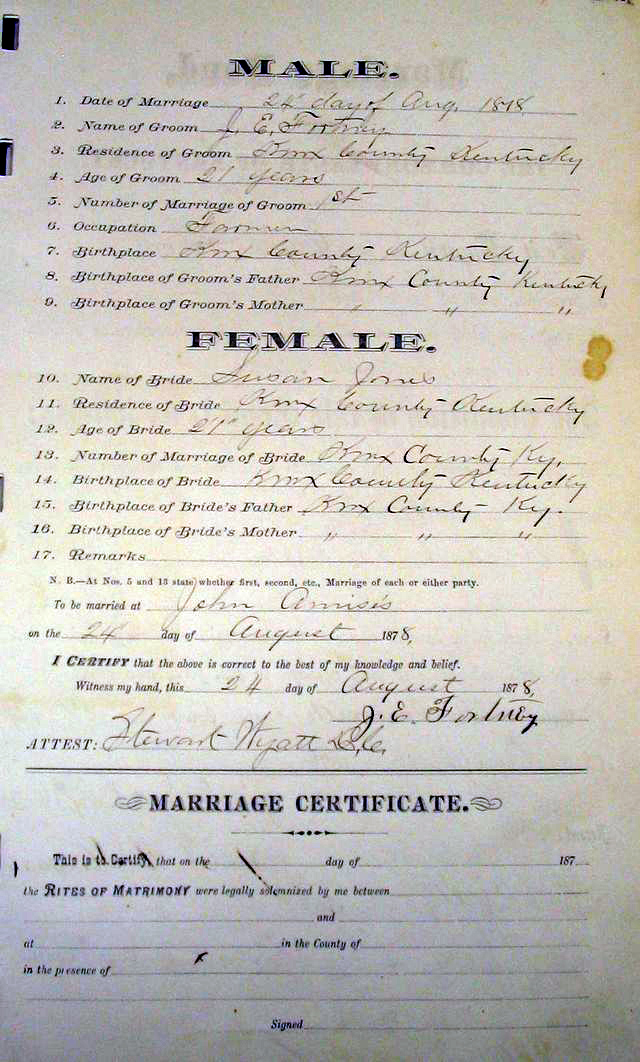 MALE.
1. Date of Marriage 24" day of Aug, 1878
2. Name of Groom J. E. Fortney
3. Residence of Groom Knox County Kentucky
4. Age of Groom 21 years
5. Number of Marriage of Groom 1st
6. Occupation Farmer
7. Birthplace Knox County Kentucky
8. Birthplace of Groom's Father Knox County Kentucky
9. Birthplace of Groom's Mother " " "
FEMALE.
10. Name of Bride Susan Jones
11. Residence of Bride Knox County Kentucky
12. Age of Bride 21" years
13. Number of Marriage of Bride Knox County Ky.
14. Birthplace of Bride Knox County Kentucky
15. Birthplace of Bride's Father Knox County Ky.
16. Birthplace of Bride's Mother " " "
17. Remarks
N. B.—At Nos. 5 and 13 state whether first, second, etc., Marriage of each or either party.
To be married at John
on the 24" day of August 1878,
I CERTIFY that the above is correct to the best of my knowledge and belief.
Witness my hand, this 24 day of August 1878,
J. E. Fortney
ATTEST: Stewart Wyatt D.C.
MARRIAGE CERTIFICATE.
This is to Certify, that on the day of 187
the RITES OF MATRIMONY were legally solemnized by me between
and
at in the County of
in the presence of
Signed